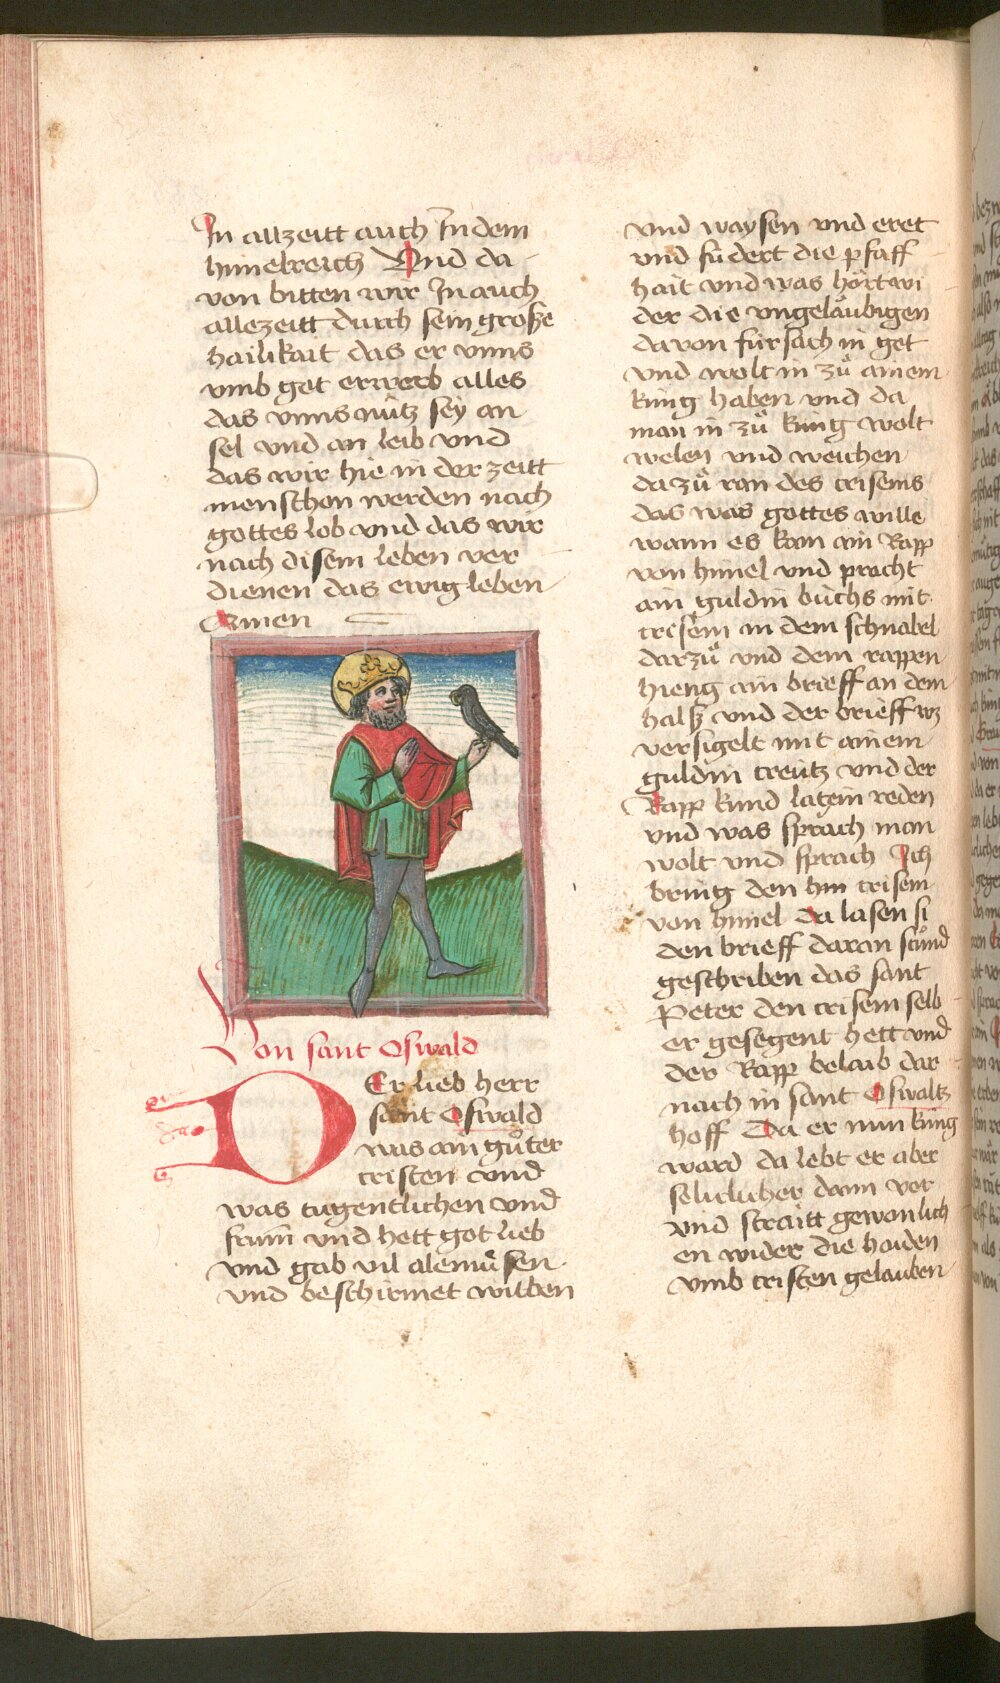 In allzeitt auch In dem
himelreich Vnd da
von bitten wir In auch
allezeitt durch sein große
hailikait das er vnns
vmb got erwerb alles
das vnns nütz sey an
sel vnd an leib vnd
das wir hie in der zeitt
menschen werden nach
gottes lob vnd das wir
nach disem leben ver
dienen das ewig leben
Amen
Von sant Oswald
DEr lieb herr
sant Oswald
was ain guͦter
cristen vnd
was tugentlichen vnd
frum̄ vnd hett got lieb
vnd gab vil alemuͦsen
vnd beschirmet witben
vnd waysen vnd eret
vnd fudert die pfaff
hait vnd was hört wi
der die vngeläubigen
daron für sach in got
vnd wolt in zuͦ ainem
king haben vnd da
man in zuͦ king wolt
welen vnd weichen
da zuͦ ran des crisems
das was gottes wille
wann es kom ain Rapp
von himel vnd pracht
ain guldin büchs mit
crisem in dem schnabel
darzuͦ vnd dem rappen
hieng ain brieff an dem
halß vnd der brieff wz
versigelt mit ainem
guldin creütz vnd der
Rapp kund latein reden
vnd was sprach man
wolt vnd sprach Ich
bring den hin crisem
von himel da lasen si
den brieff daran stuͦnd
geschriben das sant
Peter den crisem selb
er gesegent hett vnd
der Rapp belaib dar
nach in sant Oswaltz
hoff Da er nun king
ward da lebt er aber
seliclicher dann vor
vnd straitt gewonlich
en wider die haiden
vmb cristen gelauben